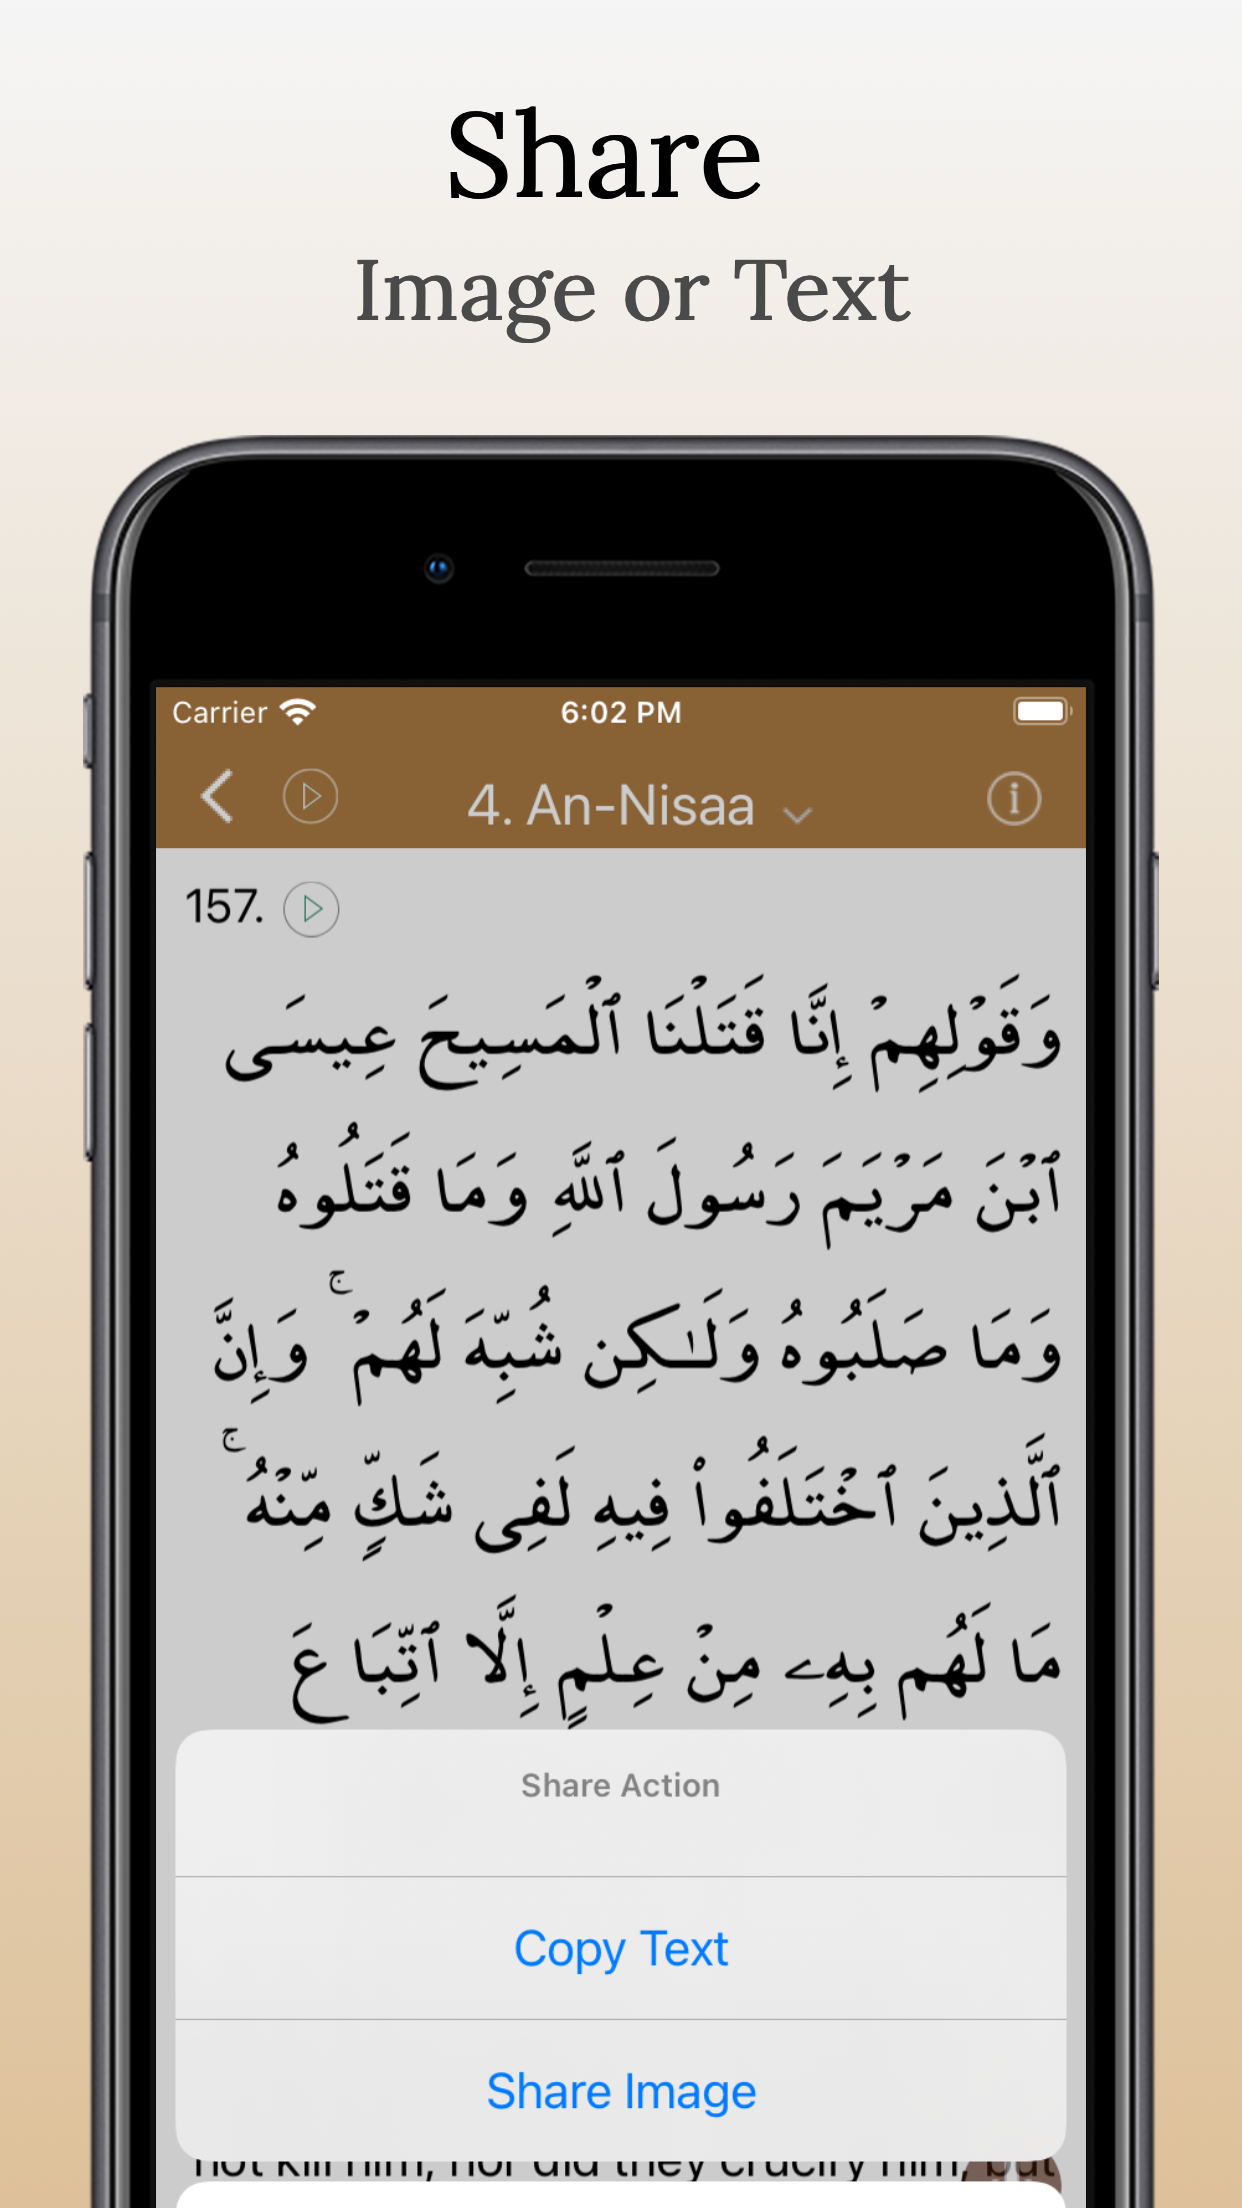 Share
Image or Text
Carrier 6:02 PM
4. An-Nisaa
157.
وَقَوْلِهِمْ إِنَّا قَتَلْنَا ٱلْمَسِيحَ عِيسَى
ٱبْنَ مَرْيَمَ رَسُولَ ٱللَّهِ وَمَا قَتَلُوهُ
وَمَا صَلَبُوهُ وَلَـٰكِن شُبِّهَ لَهُمْ ۚ وَإِنَّ
ٱلَّذِينَ ٱخْتَلَفُوا۟ فِيهِ لَفِى شَكٍّ مِّنْهُ ۚ
مَا لَهُم بِهِۦ مِنْ عِلْمٍ إِلَّا ٱتِّبَاعَ
Share Action
Copy Text
Share Image
not kill him, nor did they crucify him, but